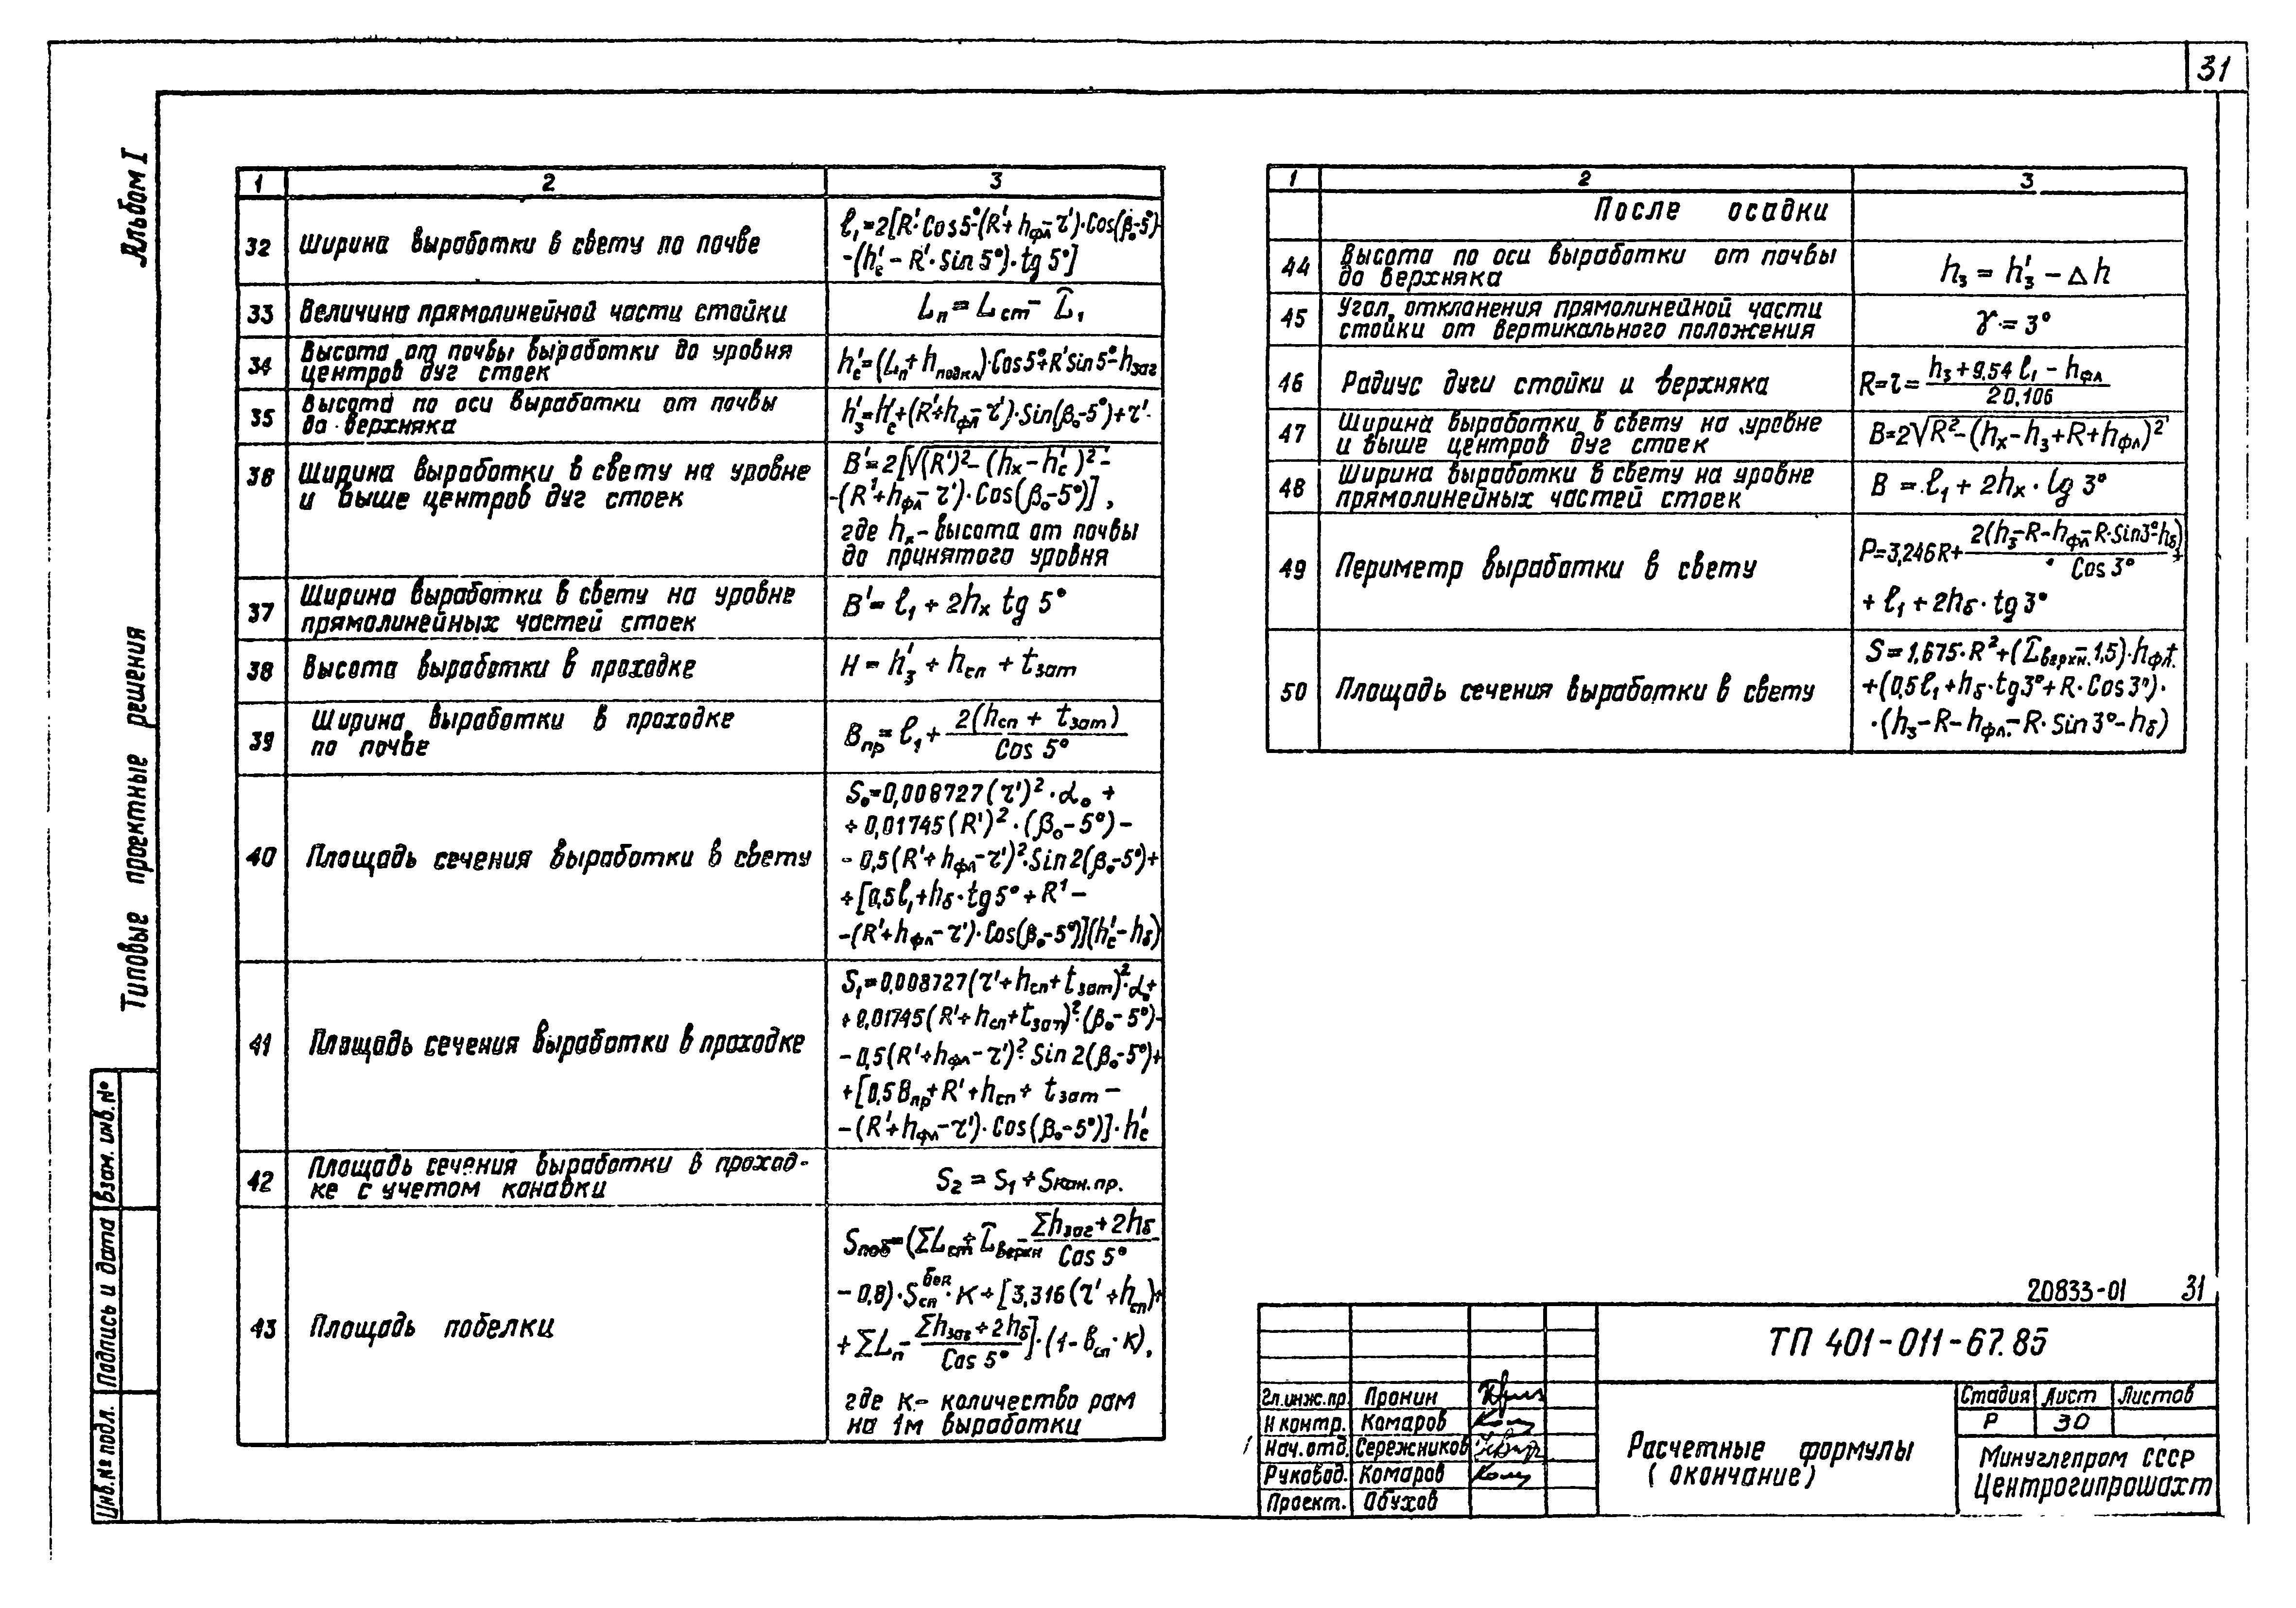 31
Альбом I
Типовые проектные решения
1 2 3
32 Ширина выработки в свету по почве
ℓ₁=2[R'·Cos5°-(R'+hфл-τ')·Cos(β₀-5°)-
-(h'с-R'·Sin5°)·tg5°]
33 Величина прямолинейной части стойки Lп=Lст-L̑₁
34 Высота от почвы выработки до уровня
центров дуг стоек
h'с=(Lп+hподкл)·Cos5°+R'Sin5°-hзаг
35 Высота по оси выработки от почвы
до верхняка
h'₃=H'с+(R'+hфл-τ')·Sin(β₀-5°)+τ'
36 Ширина выработки в свету на уровне
и выше центров дуг стоек
B'=2[√(R')²-(hх-h'с)²-
-(R'+hфл-τ')·Cos(β₀-5°)],
где hх-высота от почвы
до принятого уровня
37 Ширина выработки в свету на уровне
прямолинейных частей стоек
B'=ℓ₁+2hх tg5°
38 Высота выработки в проходке H=h'₃+hсп+tзат
39 Ширина выработки в проходке
по почве
Bпр=ℓ₁+2(hсп+tзат)/Cos5°
40 Площадь сечения выработки в свету
S₀=0,008727(τ')²·α₀+
+0,01745(R')²·(β₀-5°)-
-0,5(R'+hфл-τ')²·Sin2(β₀-5°)+
+[0,5ℓ₁+hб·tg5°+R'-
-(R'+hфл-τ')·Cos(β₀-5°)](h'с-hб)
41 Площадь сечения выработки в проходке
S₁=0,008727(τ'+hсп+tзат)²·α₀+
+0,01745(R'+hсп+tзат)²·(β₀-5°)-
-0,5(R'+hфл-τ')²·Sin2(β₀-5°)+
+[0,5Bпр+R'+hсп+tзат-
-(R'+hфл-τ')·Cos(β₀-5°)]·h'с
42 Площадь сечения выработки в проход-
ке с учетом канавки
S₂=S₁+Sкан.пр.
43 Площадь побелки
Sпоб=(ΣLст+L̑верхн-Σhзаг+2hб/Cos5°-
-0,8)·Sспбок·K+[3,316(τ'+hсп)+
+ΣLп-Σhзаг+2hб/Cos5°]·(1-всп·K),
где K-количество рам
на 1м выработки
1 2 3
После осадки
44 Высота по оси выработки от почвы
до верхняка
h₃=h'₃-Δh
45 Угол отклонения прямолинейной части
стойки от вертикального положения
γ=3°
46 Радиус дуги стойки и верхняка
R=τ=h₃+9,54ℓ₁-hфл/20,106
47 Ширина выработки в свету на уровне
и выше центров дуг стоек
B=2√R²-(hх-h₃+R+hфл)²
48 Ширина выработки в свету на уровне
прямолинейных частей стоек
B=ℓ₁+2hх·tg3°
49 Периметр выработки в свету
P=3,246R+2(h₃-R-hфл-R·Sin3°-hб)/Cos3°+
+ℓ₁+2hб·tg3°
50 Площадь сечения выработки в свету
S=1,675·R²+(L̑верхн.-1,5)·hфл.+
+(0,5ℓ₁+hб·tg3°+R·Cos3°)·
·(h₃-R-hфл.-R·Sin3°-hб)
20833-01 31
ТП 401-011-67.85
Гл.инж.пр. Пронин
Н контр. Комаров
Нач.отд. Сережников
Руковод. Комаров
Проект. Обухов
Расчетные формулы
(окончание)
Стадия Лист Листов
Р 30
Минуглепром СССР
Центрогипрошахт
Взам. инв.№
Подпись и дата
Инв.№ подл.